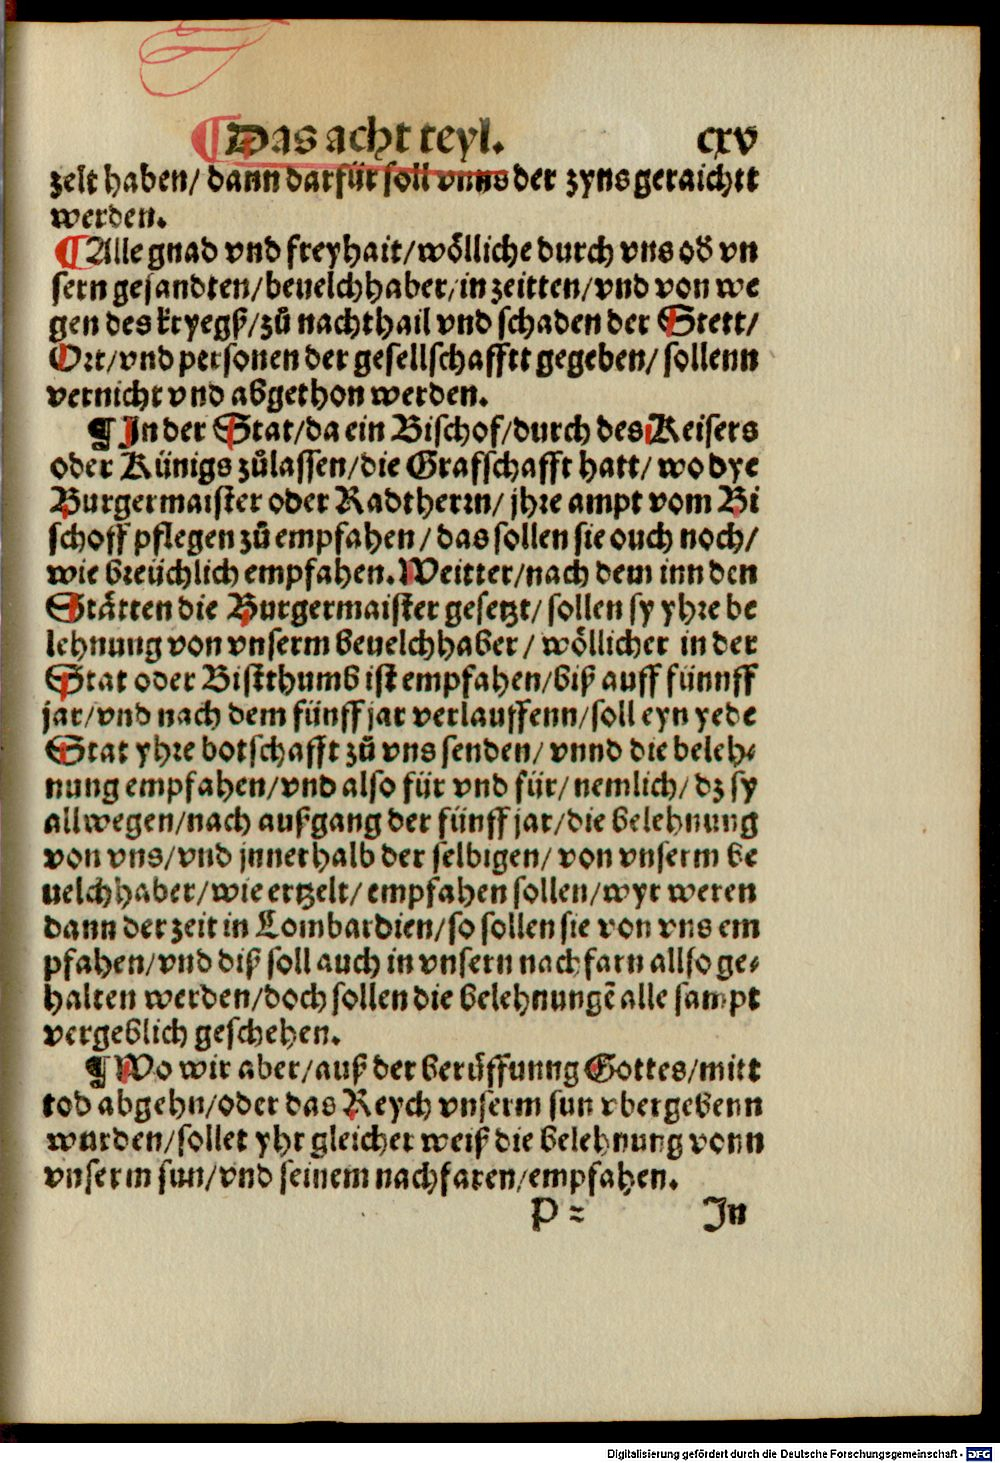 ¶Das acht teyl. cxv
zelt haben/ dann darfür soll vnns der zyns geraichtt
werden.
¶Alle gnad vnd freyhait/wölliche durch vns od̕ vn
sern gesandten/beuelchhaber/in zeitten/vnd von we
gen des kryegß/zů nachthail vnd schaden der Stett/
Ort/vnd personen der gesellschafftt gegeben/ sollenn
vernicht vnd abgethon werden.
¶ In der Stat/da ein Bischof/durch des Keisers
oder Künigs zůlassen/die Grafschafft hatt/ wo dye
Burgermaister oder Radtherrn/ jhre ampt vom Bi
schoff pflegen zů empfahen/ das sollen sie ouch noch/
wie breüchlich empfahen. Weitter/nach dem inn den
Stätten die Burgermaister gesetzt/ sollen sy yhre be
lehnung von vnserm beuelchhaber/ wöllicher in der
Stat oder Bistthumb ist empfahen/biß auff fünnff
jar/vnd nach dem fünff jar verlauffenn/soll eyn yede
Stat yhre botschafft zů vns senden/ vnnd die beleh⸗
nung empfahen/vnd also für vnd für/ nemlich/ dz sy
allwegen/nach außgang der fünff jar/die belehnung
von vns/vnd jnnerhalb der selbigen/ von vnserm be
uelchhaber/wie ertzelt/ empfahen sollen/wyr weren
dann der zeit in Lombardien/so sollen sie von vns em
pfahen/vnd diß soll auch in vnsern nachfarn allso ge⸗
halten werden/doch sollen die belehnungē alle sampt
vergeblich geschehen.
¶ Wo wir aber/auß der berůffunng Gottes/mitt
tod abgehn/oder das Reych vnserm sun vbergebenn
wurden/sollet yhr gleicher weiß die belehnung vonn
vnserm sun/vnd seinem nachfaren/empfahen.
P 2 In
Digitalisierung gefördert durch die Deutsche Forschungsgemeinschaft - DFG